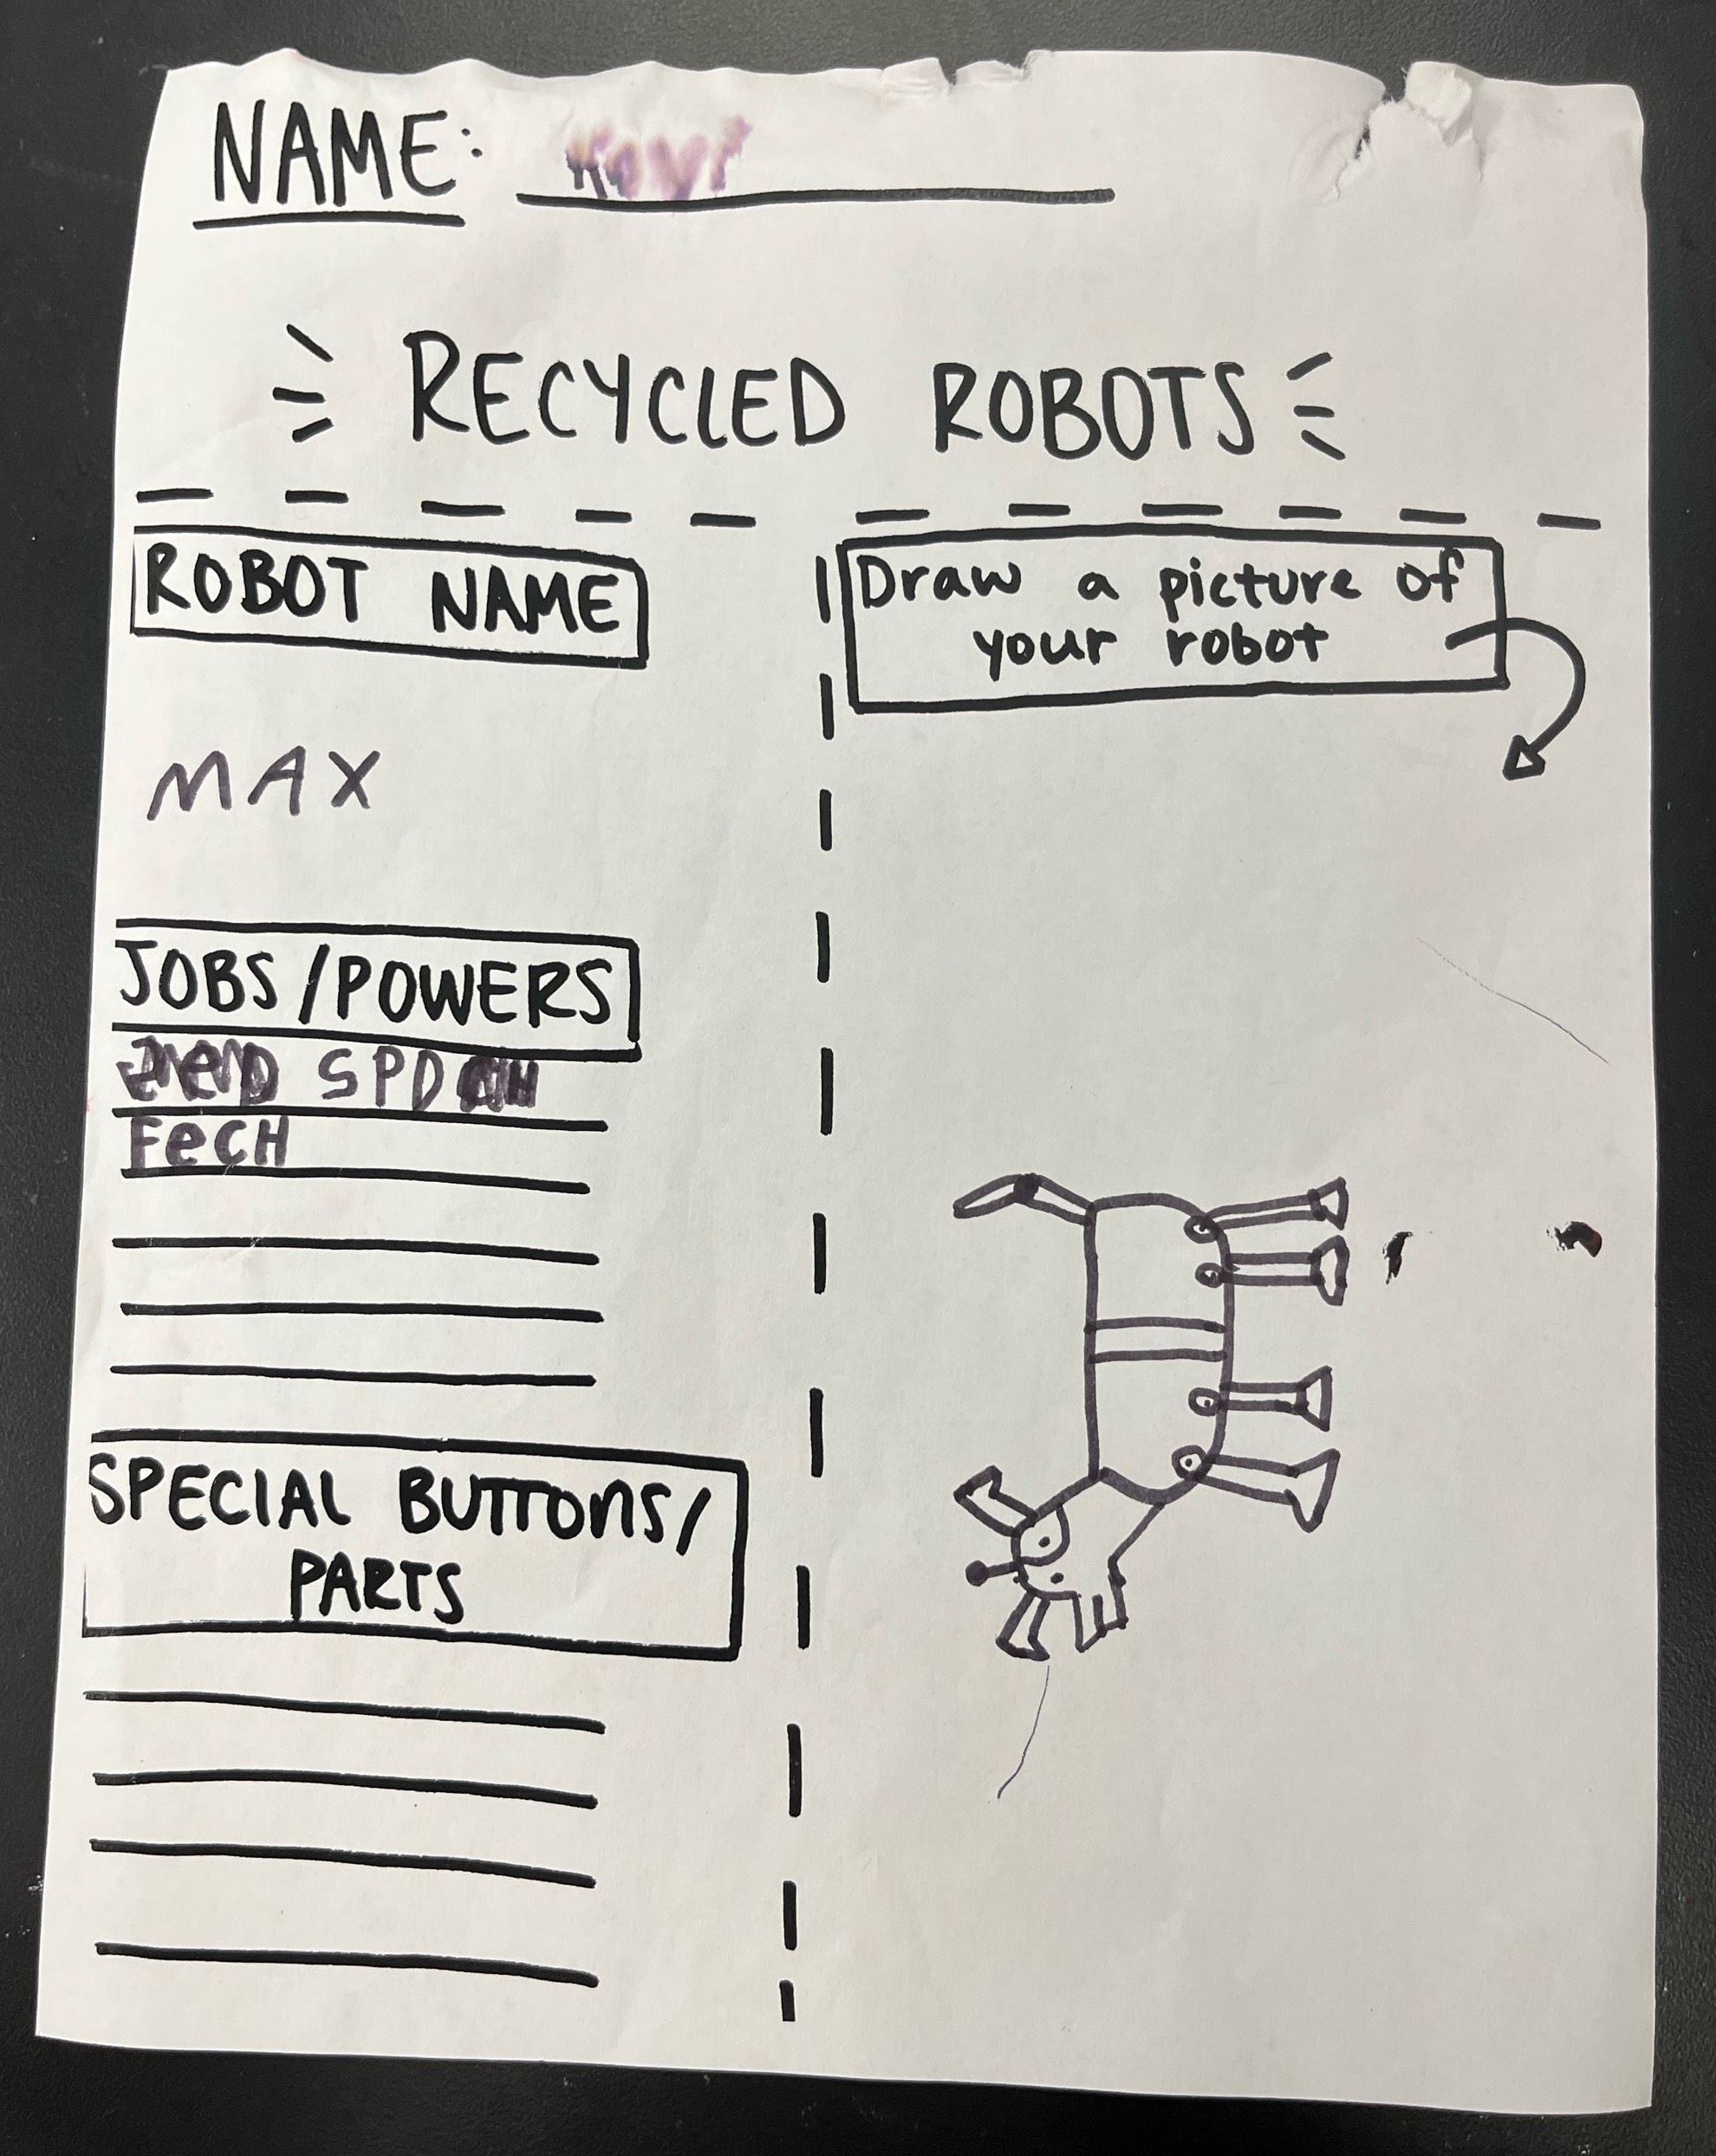 NAME:
RECYCLED ROBOTS
ROBOT NAME
MAX
JOBS/POWERS
SPD
FeCH
SPECIAL BUTTONS/
PARTS
Draw a picture of
your robot